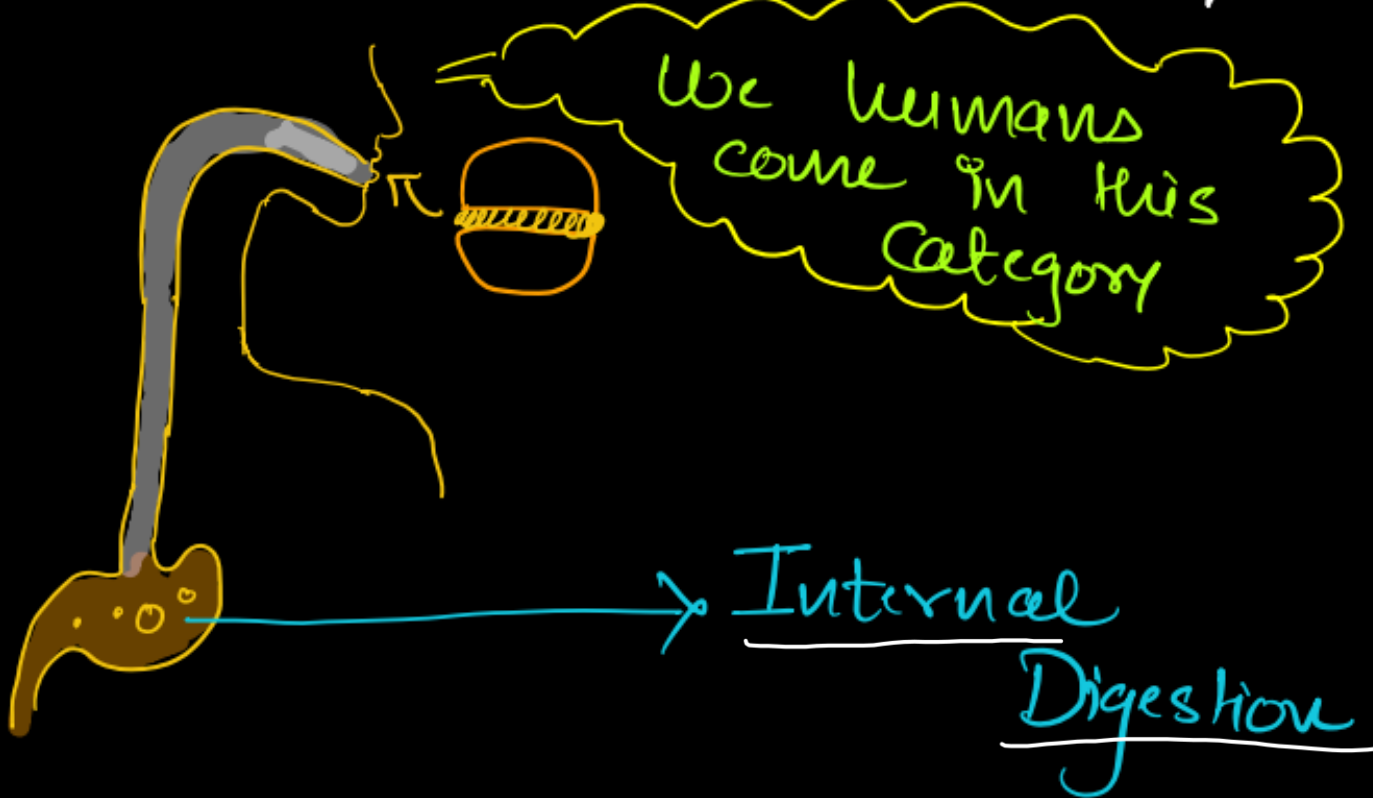 We humans
come in this
Category
Internal
Digestion